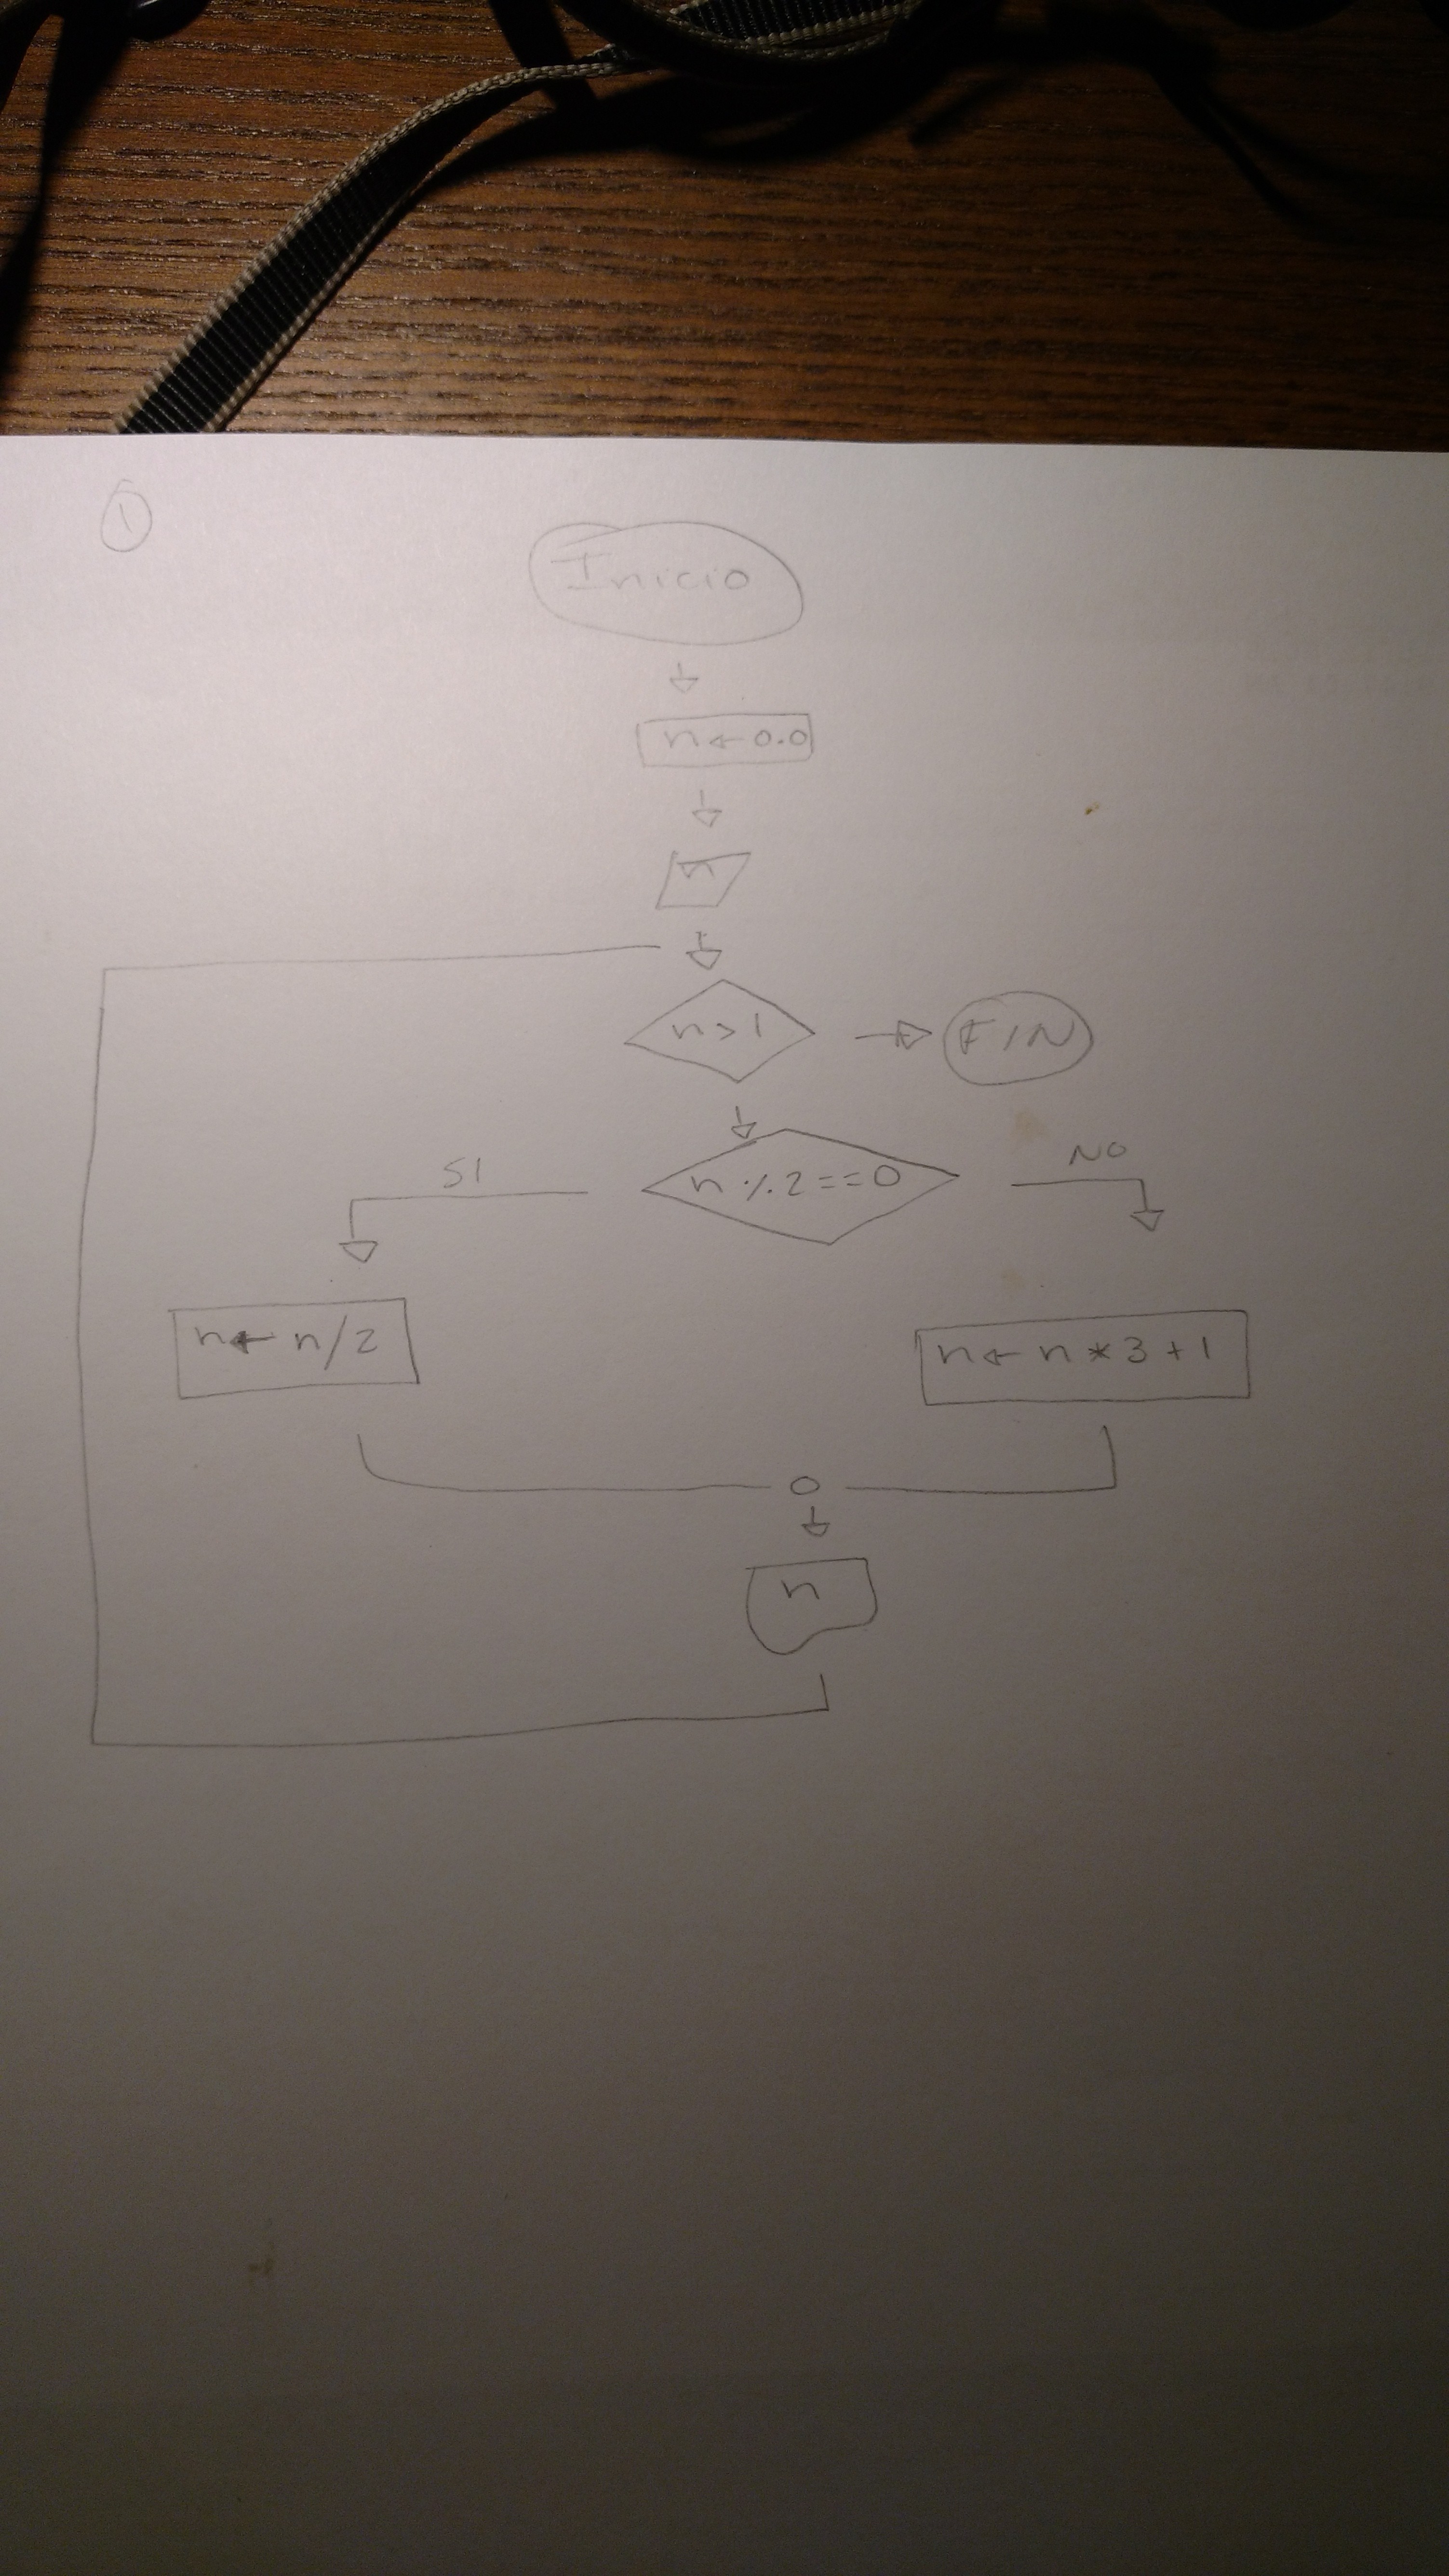 1
Inicio
n ← 0.0
n
n > 1
FIN
n % 2 == 0
SI
NO
n ← n/2
n ← n * 3 + 1
n